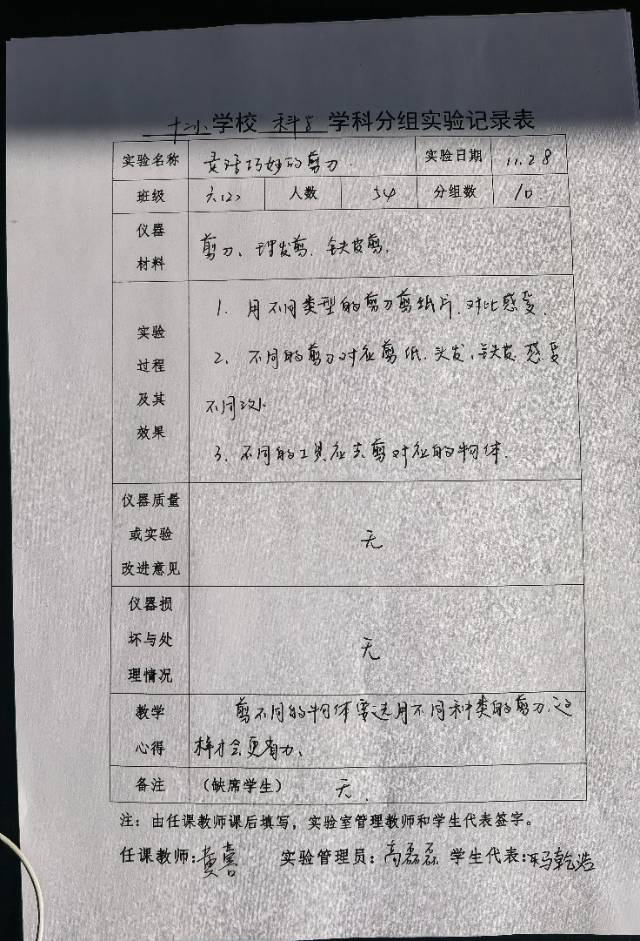 十小学校 科学 学科分组实验记录表
实验名称 灵活巧妙的剪刀 实验日期 11.28
班级 六(2) 人数 54 分组数 10
仪器材料 剪刀、理发剪、铁皮剪.
实验过程及其效果
1. 用不同类型的剪刀剪纸片.对比感受.
2、不同的剪刀对应剪纸.头发,铁皮.感受
不同效
3、不同的工具应去剪对应的物体.
仪器质量或实验改进意见 无
仪器损坏与处理情况 无
教学心得 剪不同的物体要选用不同种类的剪刀.这
样才会更有力、
备注 (缺席学生) 无.
注：由任课教师课后填写，实验室管理教师和学生代表签字。
任课教师:黄喜 实验管理员：高磊磊 学生代表:冯乾浩